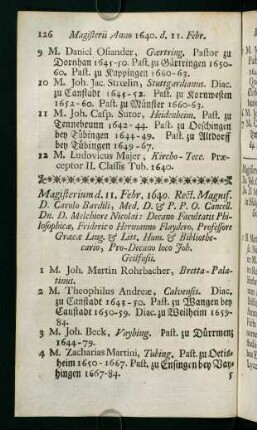 126 Magisterii Anno 1640. d. 11. Febr.
9 M. Daniel Osiander, Gœrtring. Pastor zu
Dornhan 1645-50. Past. zu Gärtringen 1650-
60. Past. zu Kuppingen 1660-63.
10 M. Joh. Jac. Strœlin, Stuttgardianus. Diac.
zu Canstadt 1645-52. Past. zu Kornwesten
1652-60. Past. zu Münster 1660-63.
11 M. Joh. Casp. Sutor, Heidenheim. Past. zu
Tennebrunn 1642-44. Past. zu Oeschingen
bey Tübingen 1644-49. Past. zu Altdorff
bey Tübingen 1649-67.
12 M. Ludovicus Majer, Kircho-Tecc. Præ-
ceptor II. Classis Tub. 1640.
Magisterium d. 11. Febr. 1640. Rect. Magnif.
D. Carolo Bardili, Med. D. & P. P. O. Cancell.
Dn. D. Melchiore Nicolai: Decano Facultatis Phi-
losophicæ, Friderico Hermanno Flaydero, Professore
Græcæ Ling. & Litt. Hum. & Bibliothe-
cario, Pro-Decano loco Joh.
Geilfusii.
1 M. Joh. Martin Rohrbacher, Bretta-Pala-
tinus.
2 M. Theophilus Andreæ, Calvensis. Diac.
zu Canstadt 1643-50. Past. zu Wangen bey
Canstadt 1650-59. Diac. zu Weilheim 1659-
84.
3 M. Joh. Beck, Vaybing. Past. zu Dürrmenz
1644-79.
4 M. Zacharias Martini, Tubing. Past. zu Oetis-
heim 1650-1667. Past. zu Ensingen bey Vay-
hingen 1667-84. 5